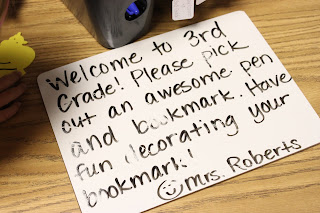 Welcome to 3rd
Grade! Please pick
out an awesome pen
and bookmark. Have
fun decorating your
bookmark!
Mrs. Roberts